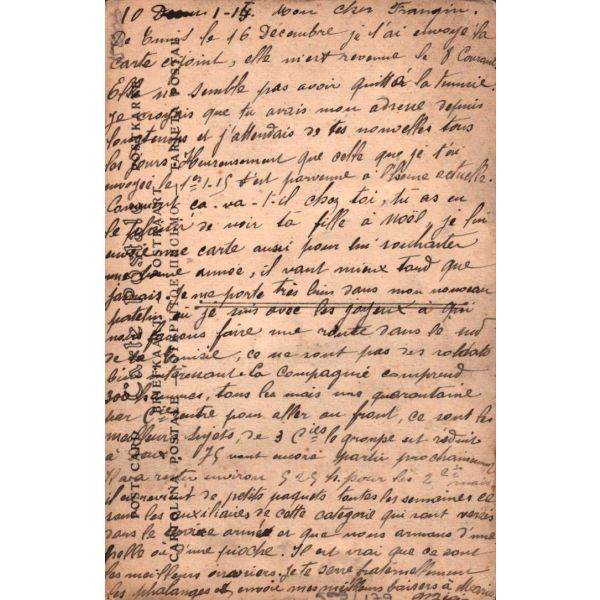 10 1-15. Mon cher Frangin.
De Tunis le 16 Décembre je t'ai envoyé la
carte ci joint, elle m'est revenue le 8 Courant
Elle ne semble pas avoir quitté la Tunisie.
Je croyais que tu avais mon adresse depuis
longtemps et j'attendais de tes nouvelles tous
les jours. Heureusement que celle que je t'ai
envoyée le 1er 1-15 t'est parvenue à l'heure actuelle.
Comment ça-va-t-il chez toi, tu as eu
le plaisir de voir ta fille à Noël, je lui
envoie une carte aussi pour lui souhaiter
une bonne année, il vaut mieux tard que
jamais. Je me porte très bien dans mon nouveau
patelin, où je suis avec les joyeux à qui
nous faisons faire une route dans le sud
de la Tunisie, ce ne sont pas des soldats
bien la Compagnie comprend
300 hommes, tous les mois une quarantaine
par Cie rentre pour aller au front, ce sont les
meilleurs sujets, de 3 Cies le groupe est réduit
à deux, 75 vont encore partir prochainement
il va rester environ 525 h. pour les 2 Cies mais
il en revient de petits paquets toutes les semaines ce
sont les auxiliaires de cette catégorie qui sont versés
dans le service armé et que nous armons d'une
pelle ou d'une pioche. Il est vrai que ce sont
les meilleurs ouvriers. Je te serre fraternellement
les phalanges et envoie mes meilleurs baisers à Marie
CARTE POSTALE
POST CARD POSTKARTE
BRIEFKAART
CARTOLINA POSTALE TARJETA POSTAL